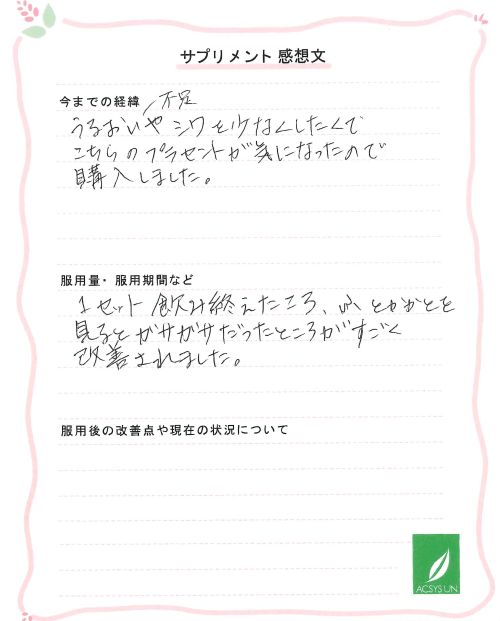 サプリメント 感想文
今までの経緯
不足
うるおいや シワを少なくしたくて
こちらのプラセントが気になったので
購入しました。
服用量・服用期間など
1セット飲み終えたころ、ふとかかとを
見るとガサガサだったところがすごく
改善されました。
服用後の改善点や現在の状況について
ACSYSUN